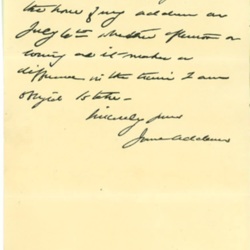 the hour of my address on
July 6th whether afternoon or
evening as it makes a
difference in the train I am
obliged to take –
Sincerely yours
Jane Addams